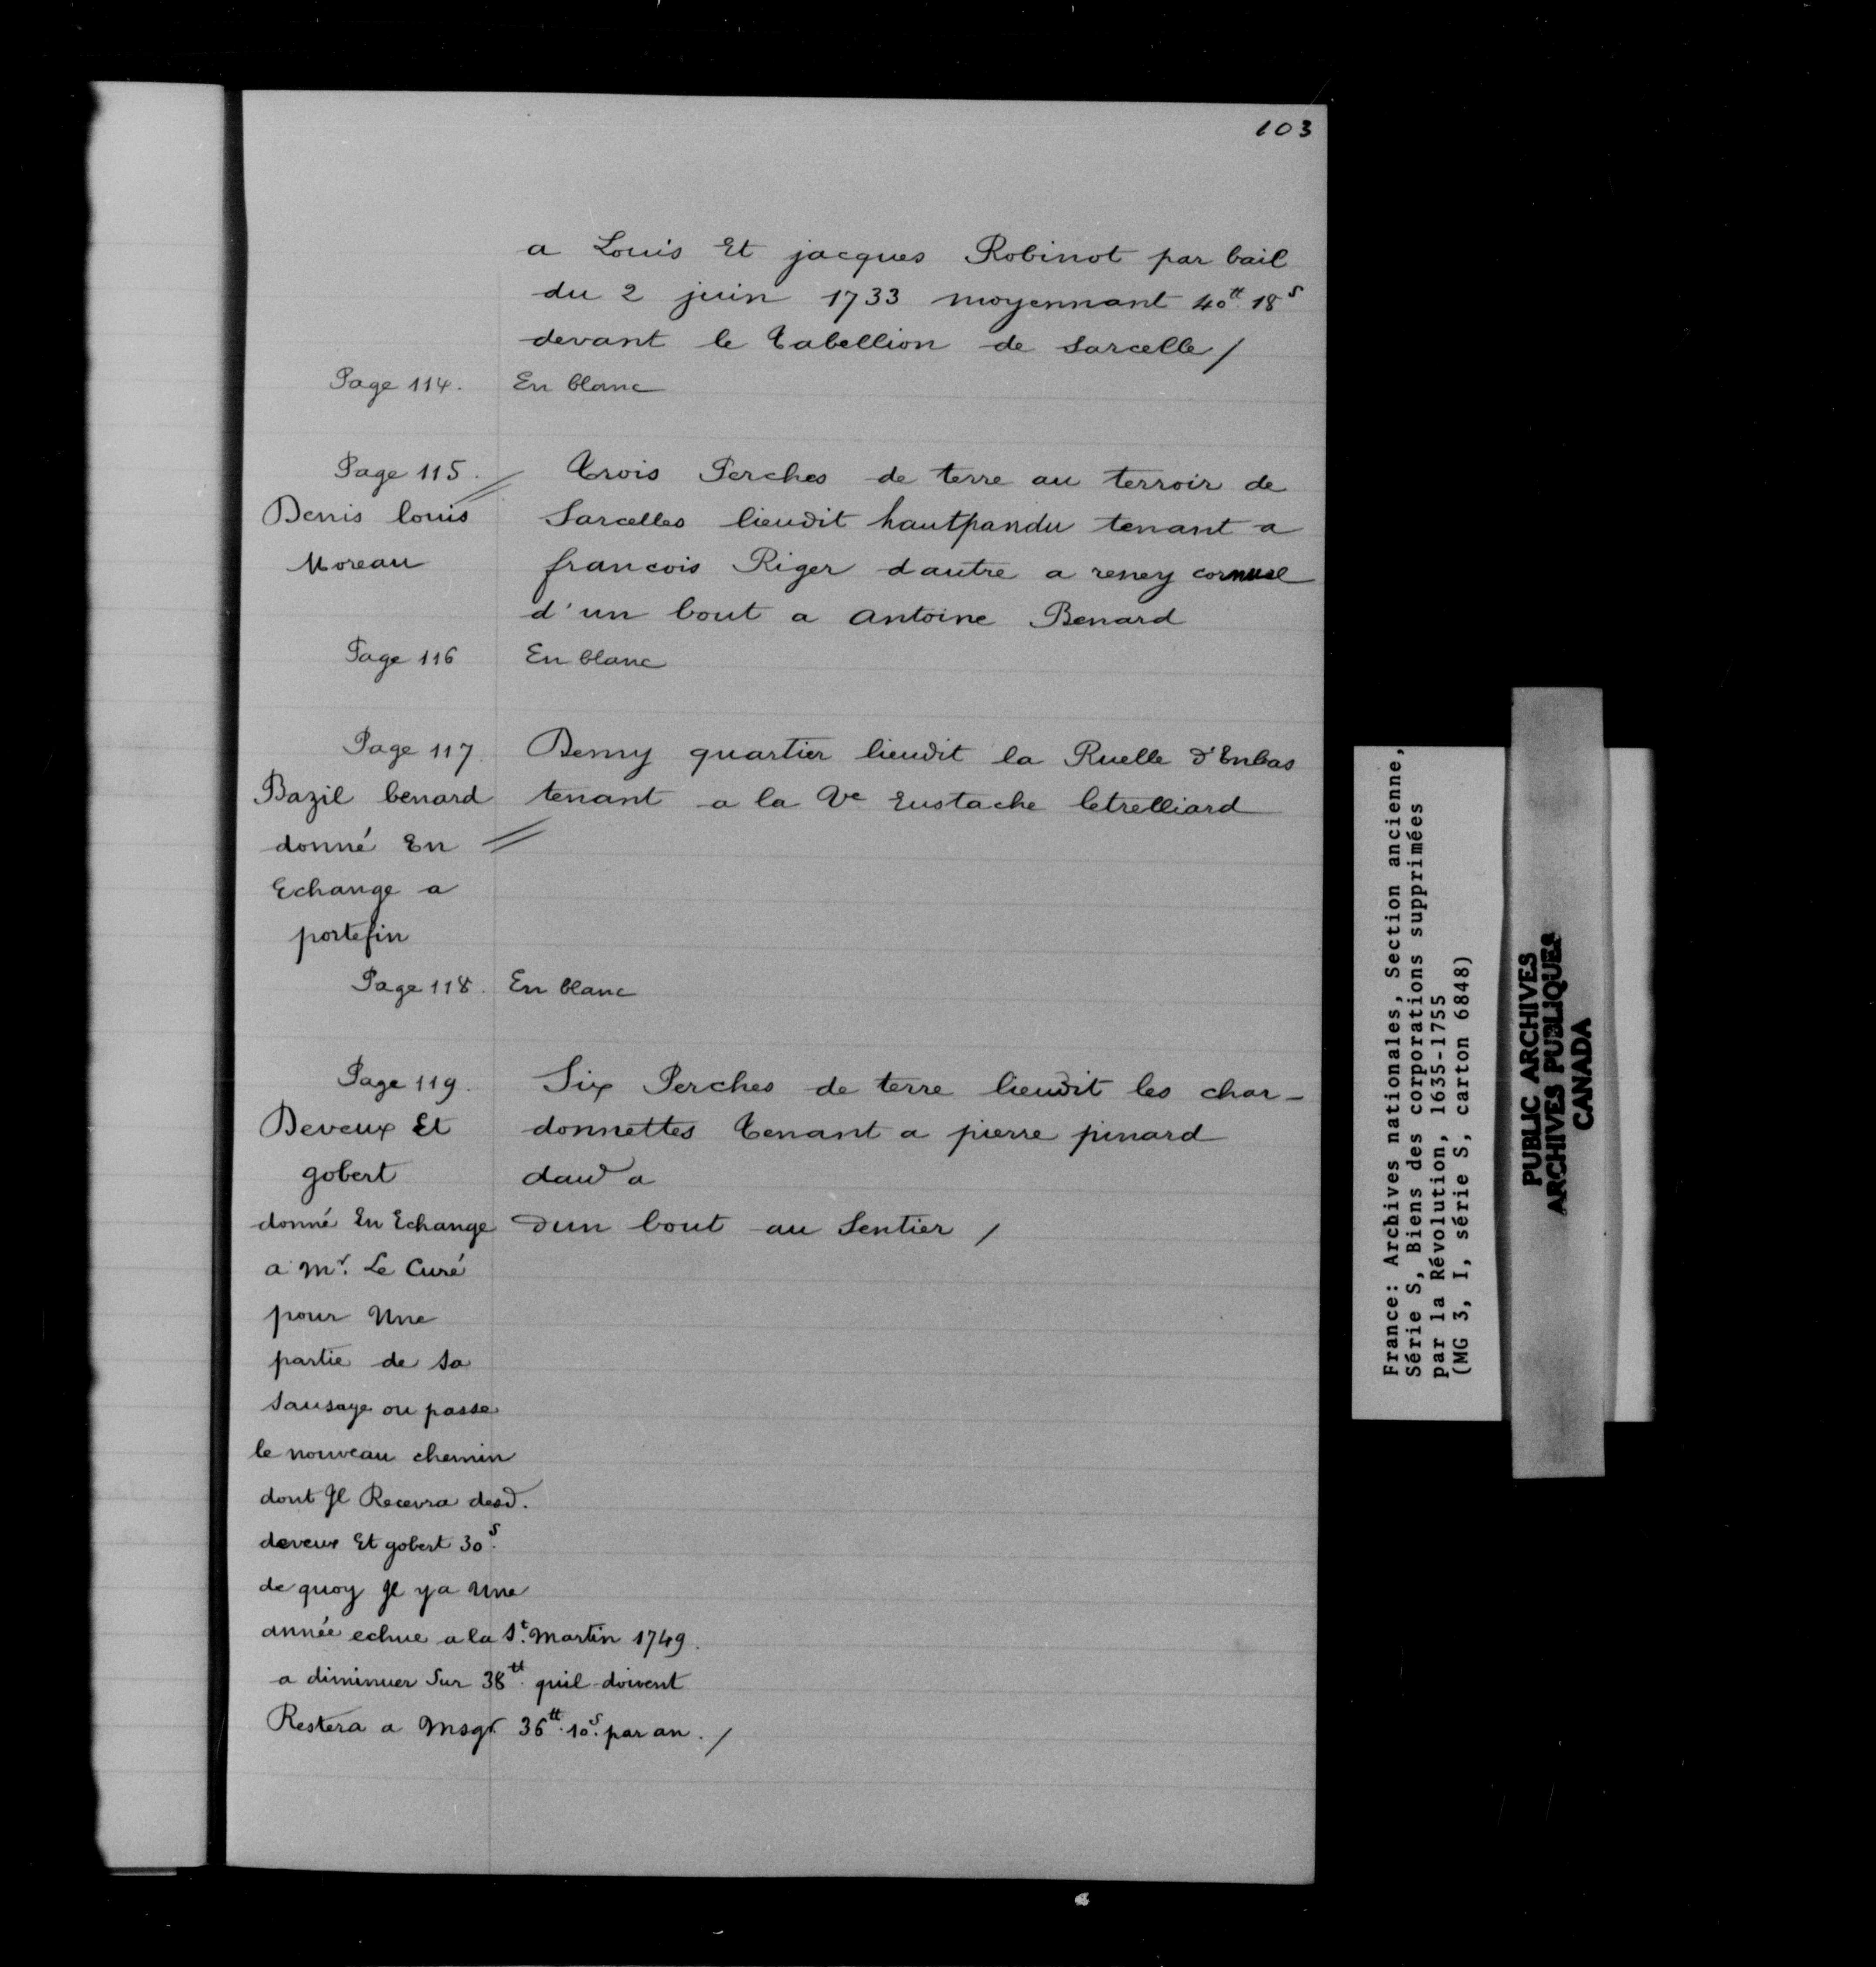 103
a Louis Et jacques Robinot par bail
du 2 juin 1733 moyennant 40tt 18s
devant le tabellion de Sarcelle /
Page 114. En blanc
Page 115.
Denis louis
Moreau
Trois Perches de terre au terroir de
Sarcelles lieudit hautpandu tenant a
francois Riger dautre a reney cornuel
d'un bout a Antoine Benard
Page 116 En blanc
Page 117
Bazil benard
donné En
Echange a
portefin
Demy quartier lieudit la Ruelle d'Enbas
tenant a la Ve Eustache letrelliard
Page 118. En blanc
Page 119.
Deveux Et
gobert
donné En Echange
a Mr. Le Curé
pour Une
partie de sa
sausaye ou passe
le nouveau chemin
dont Jl Recevra desd.
deveux Et gobert 30s.
de quoy Jl ya Une
année echue a la St. Martin 1749.
a diminuer Sur 38tt. quil doivent
Restera a Msgr. 36tt. 10s. par an. /
Six Perches de terre lieudit les char-
donnettes tenant a pierre pinard
daud a
dun bout au Sentier /
France: Archives nationales, Section ancienne,
Série S, Biens des corporations supprimées
par la Révolution, 1635-1755
(MG 3, I, série S, carton 6848)
PUBLIC ARCHIVES
ARCHIVES PUBLIQUES
CANADA